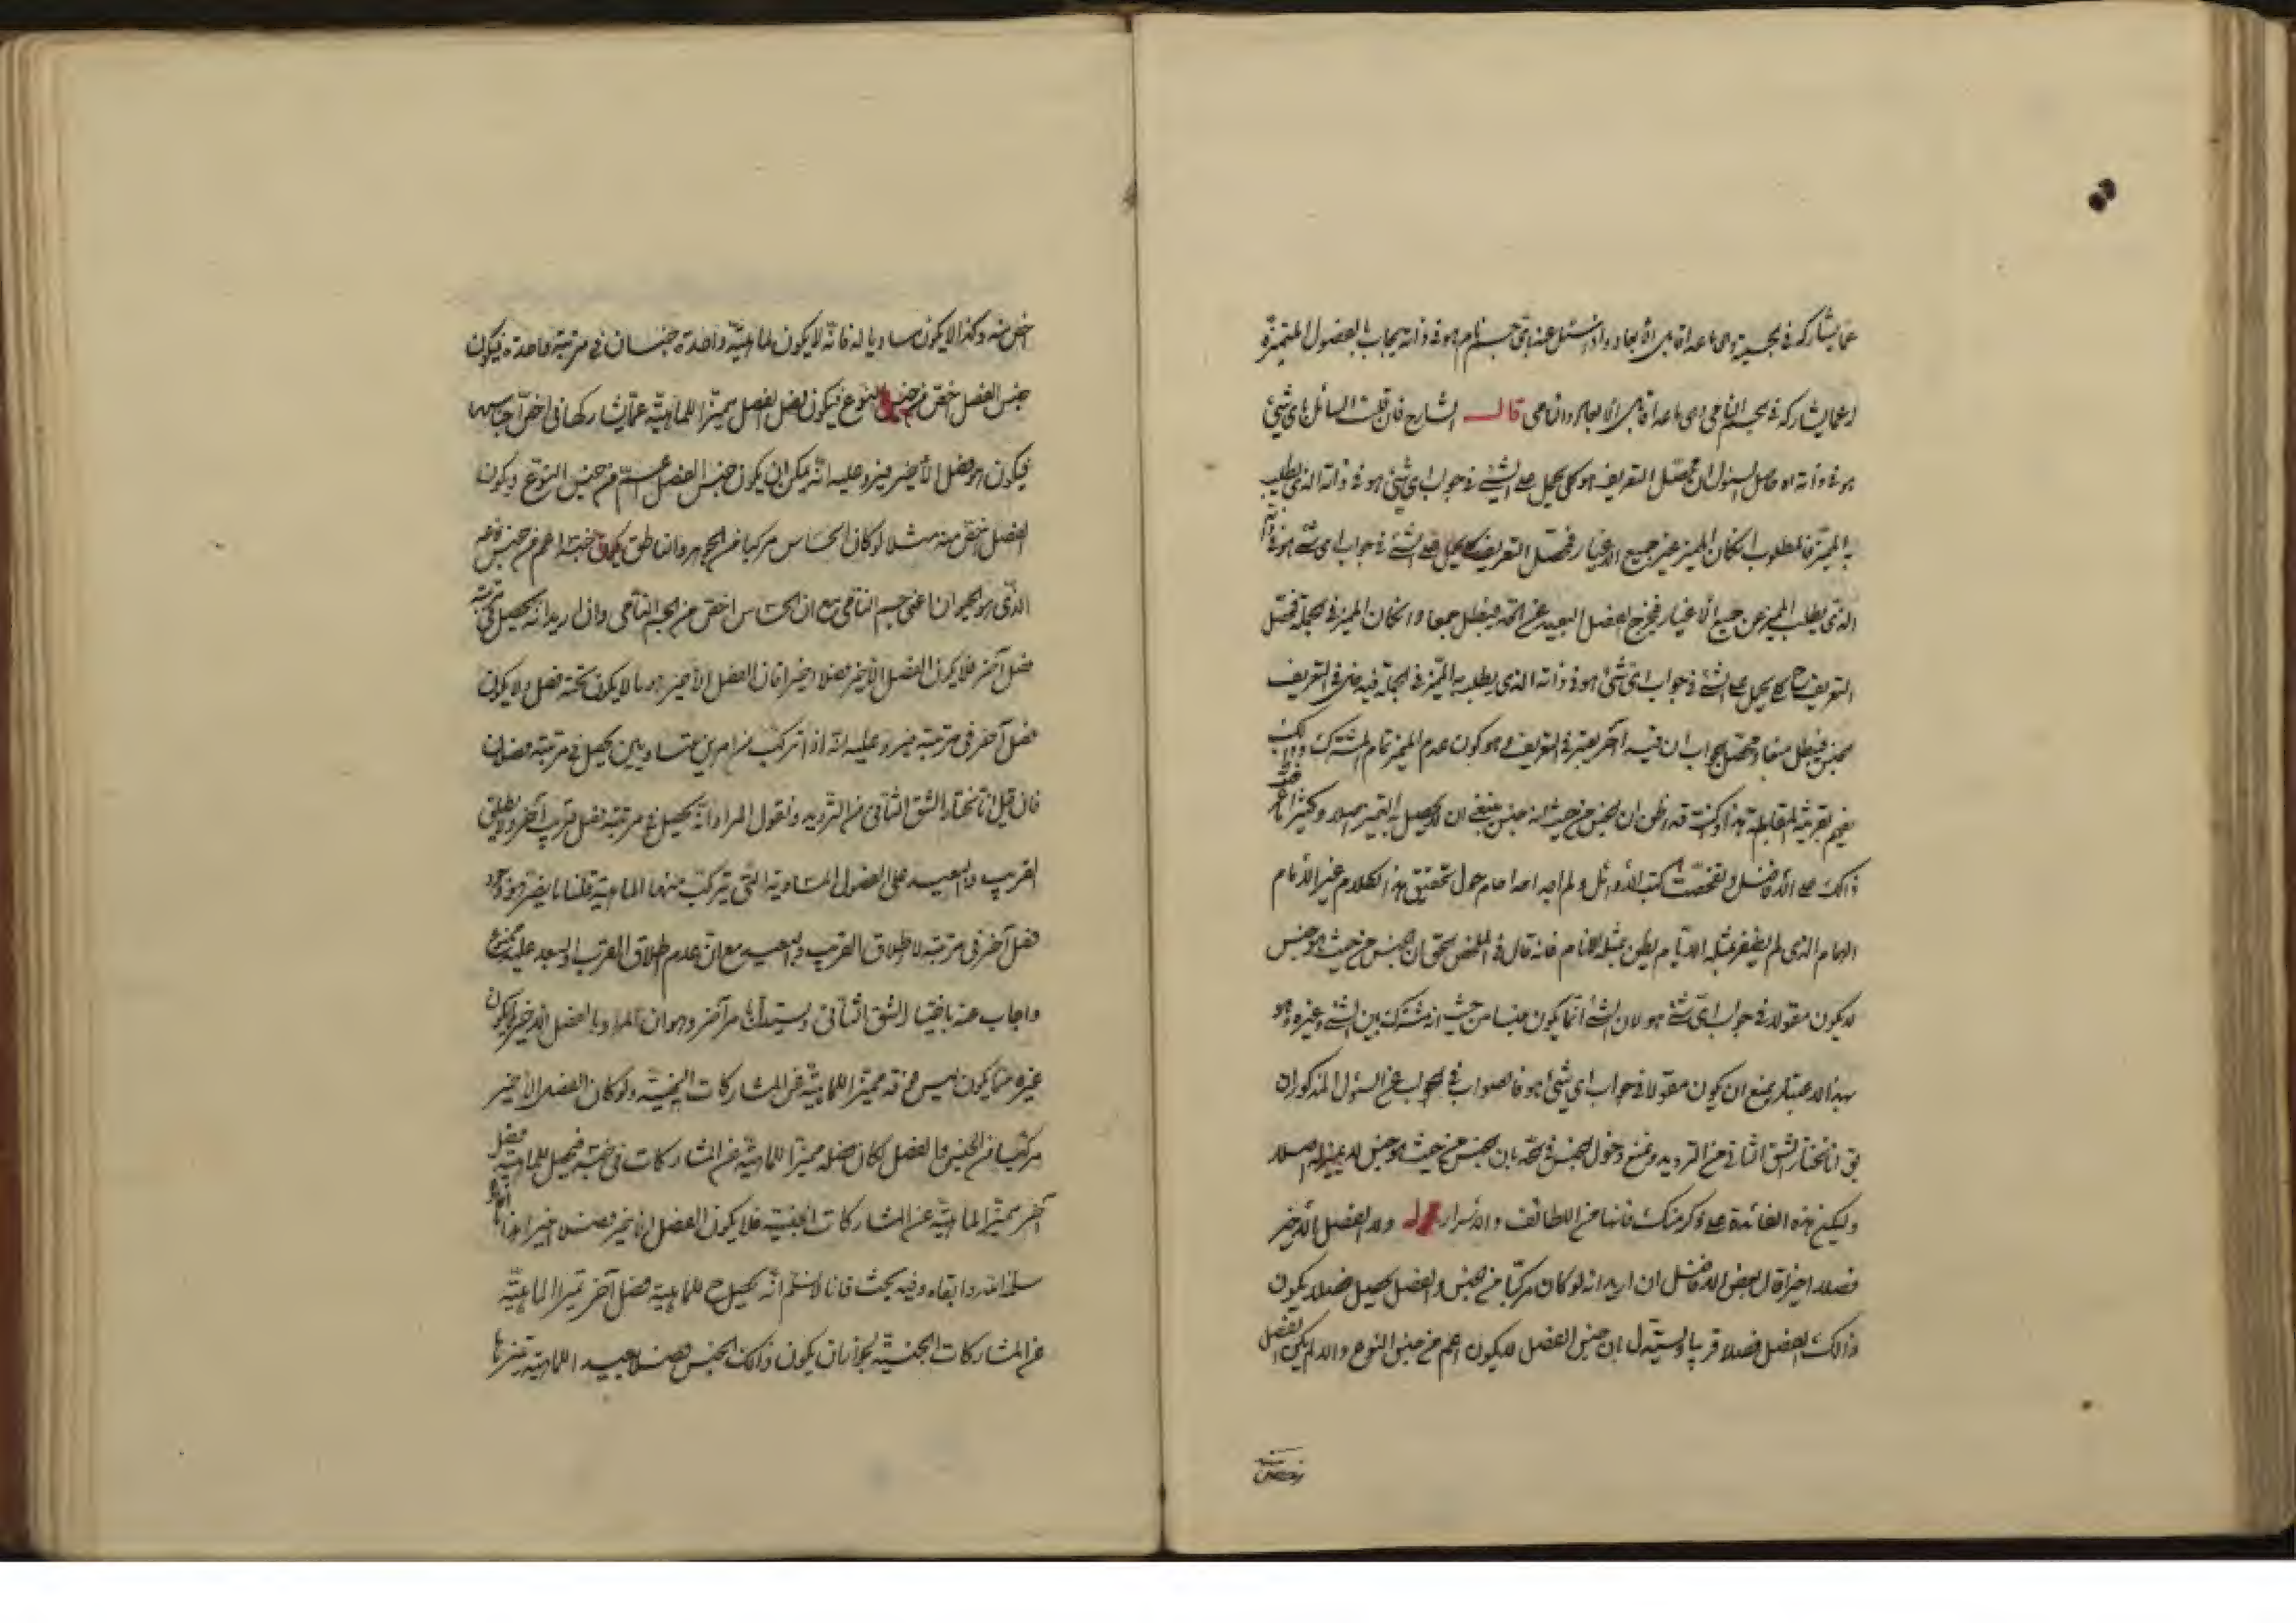 عما يشاركه في الجسمية وهي ما عدا قابل الأبعاد واذا سئل عنه باي جسم نام هو في ذاته يجاب بالفصول المتميزة
عما يشاركه في الجسم النامي وهي ما عدا قابل الابعاد والنامي قال الشارح فان قلت السائل باي شيء
هو في ذاته حاصل السئوال ان محصل التعريف هو كلي يحمل على الشيء في جواب اي شيء هو في ذاته الذي يطلب
به المميز فالمطلوب ان كان المميز عن جميع الاغيار فمحصل التعريف كلي يحمل على الشيء في جواب اي شيء هو في ذاته
الذي يطلب المميز عن جميع الأغيار فيخرج الفصل البعيد عن الحد فيبطل جمعا وان كان المميز في الجملة فمحصل
التعريف ح كلي يحمل على الشيء في جواب اي شيء هو في ذاته الذي يطلب به المميز في الجملة فيدخل في التعريف
الجنس فيبطل منعا ومحصل الجواب ان قيد آخر يعتبر في التعريف وهو كون عدم المميز تمام المشترك وذلك
يفهم بقرينة المقابلة هذا وكنت قد اظن ان الجنس من حيث انه جنس ينبغي ان لا يحصل به التميز اصلا وكثيرا
ذلك على الأفاضل وتفحصت كتب الأوائل ولم اجد احدا حام حول تحقيق هذا الكلام غير الامام
الهمام الذي لم يظفر بمثله الايام بمثله الانام فانه قال في الملخص الحق ان الجنس من حيث هو جنس
لا يكون مقولا في جواب اي شيء هو لان الشيء انما يكون جنسا من حيث انه مشترك بين الشيء وغيره وهو
بهذا الاعتبار يمنع ان يكون مقولا في جواب اي شيء هو فالصواب في الجواب عن السئول المذكور ان
يق انا نختار الشق الثاني من الترديد ونمنع دخول الجنس في الحد بان الجنس من حيث هو جنس لا يميز اصلا
وليكن هذه الفائدة على ذكر منك فانها من اللطائف والأسرار ولا الفصل الأخير
فصلا اخيرا قال بعض الافاضل ان اريد انه لو كان مركبا من الجنس والفصل يحصل فصل لا يكون
ذلك الفصل فصلا قريبا ويستدل بان جنس الفصل لا يكون اعم من جنس النوع والا لم يكن الفصل
اخص منه وكذا لا يكون مساويا له فانه لا يكون لماهية واحدة جنسان في مرتبة واحدة فيكون
جنس الفصل اخص من جنس النوع فيكون فصل الفصل مميزا للماهية عما يشاركها في اخص اجناسها
فيكون هو فصل الأخير فيرد عليه انه يمكن ان يكون جنس الفصل اعم من جنس النوع ويكون
الفصل اخص منه مثلا لو كان الحساس مركبا من الجوهر والناطق يكون جنسه اعم من جنس
الذي هو الحيوان اعني جسم النامي مع ان الحساس اخص من الجسم النامي وان اريد انه يحصل في مرتبته
فصل آخر فلا يكون الفصل الأخير فصلا اخيرا فان الفصل الأخير هو ما لا يكون تحته فصل ولا يكون
فصل آخر في مرتبته فيرد عليه انه اذا تركب من امرين متساويين يحصل في مرتبته فصلان
فان قيل انا نختار الشق الثاني من الترديد ونقول المراد انه يحصل في مرتبته فصل قريب آخر ولا يطلق
القريب والبعيد على الفصول المتساوية التي يتركب منها الماهية قلنا ما يضر هو وجود
فصل آخر في مرتبته لا اطلاق القريب والبعيد مع ان عدم اطلاق القريب والبعيد عليه ممنوع
واجاب عنه باختيار الشق الثاني ويستدل بامر آخر وهو ان المراد بالفصل الأخير ان يكون
غيره مما يكون ليس فوقه مميزا للماهية عن المشاركات الجنسية ولو كان الفصل الأخير
مركبا من الجنس والفصل لكان فصله مميزا للماهية عن المشاركات في جنسه فيحصل للماهية فصل
آخر مميز الماهية عن المشاركات الجنسية فلا يكون الفصل الاخير فصلا اخيرا هذا
سلمه الله وابقاه وفيه بحث فانا لا نسلم انه يحصل ح للماهية فصل آخر تميز الماهية
عن المشاركات الجنسية لجواز ان يكون ذلك الجنس فصلا بعيدا للماهية